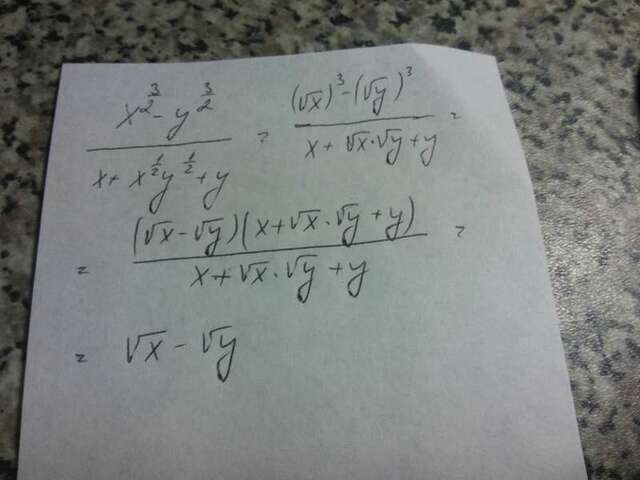 x^(3/2) - y^(3/2) / x + x^(1/2) y^(1/2) + y = (√x)^3 - (√y)^3 / x + √x · √y + y =
= (√x - √y)(x + √x · √y + y) / x + √x · √y + y =
= √x - √y